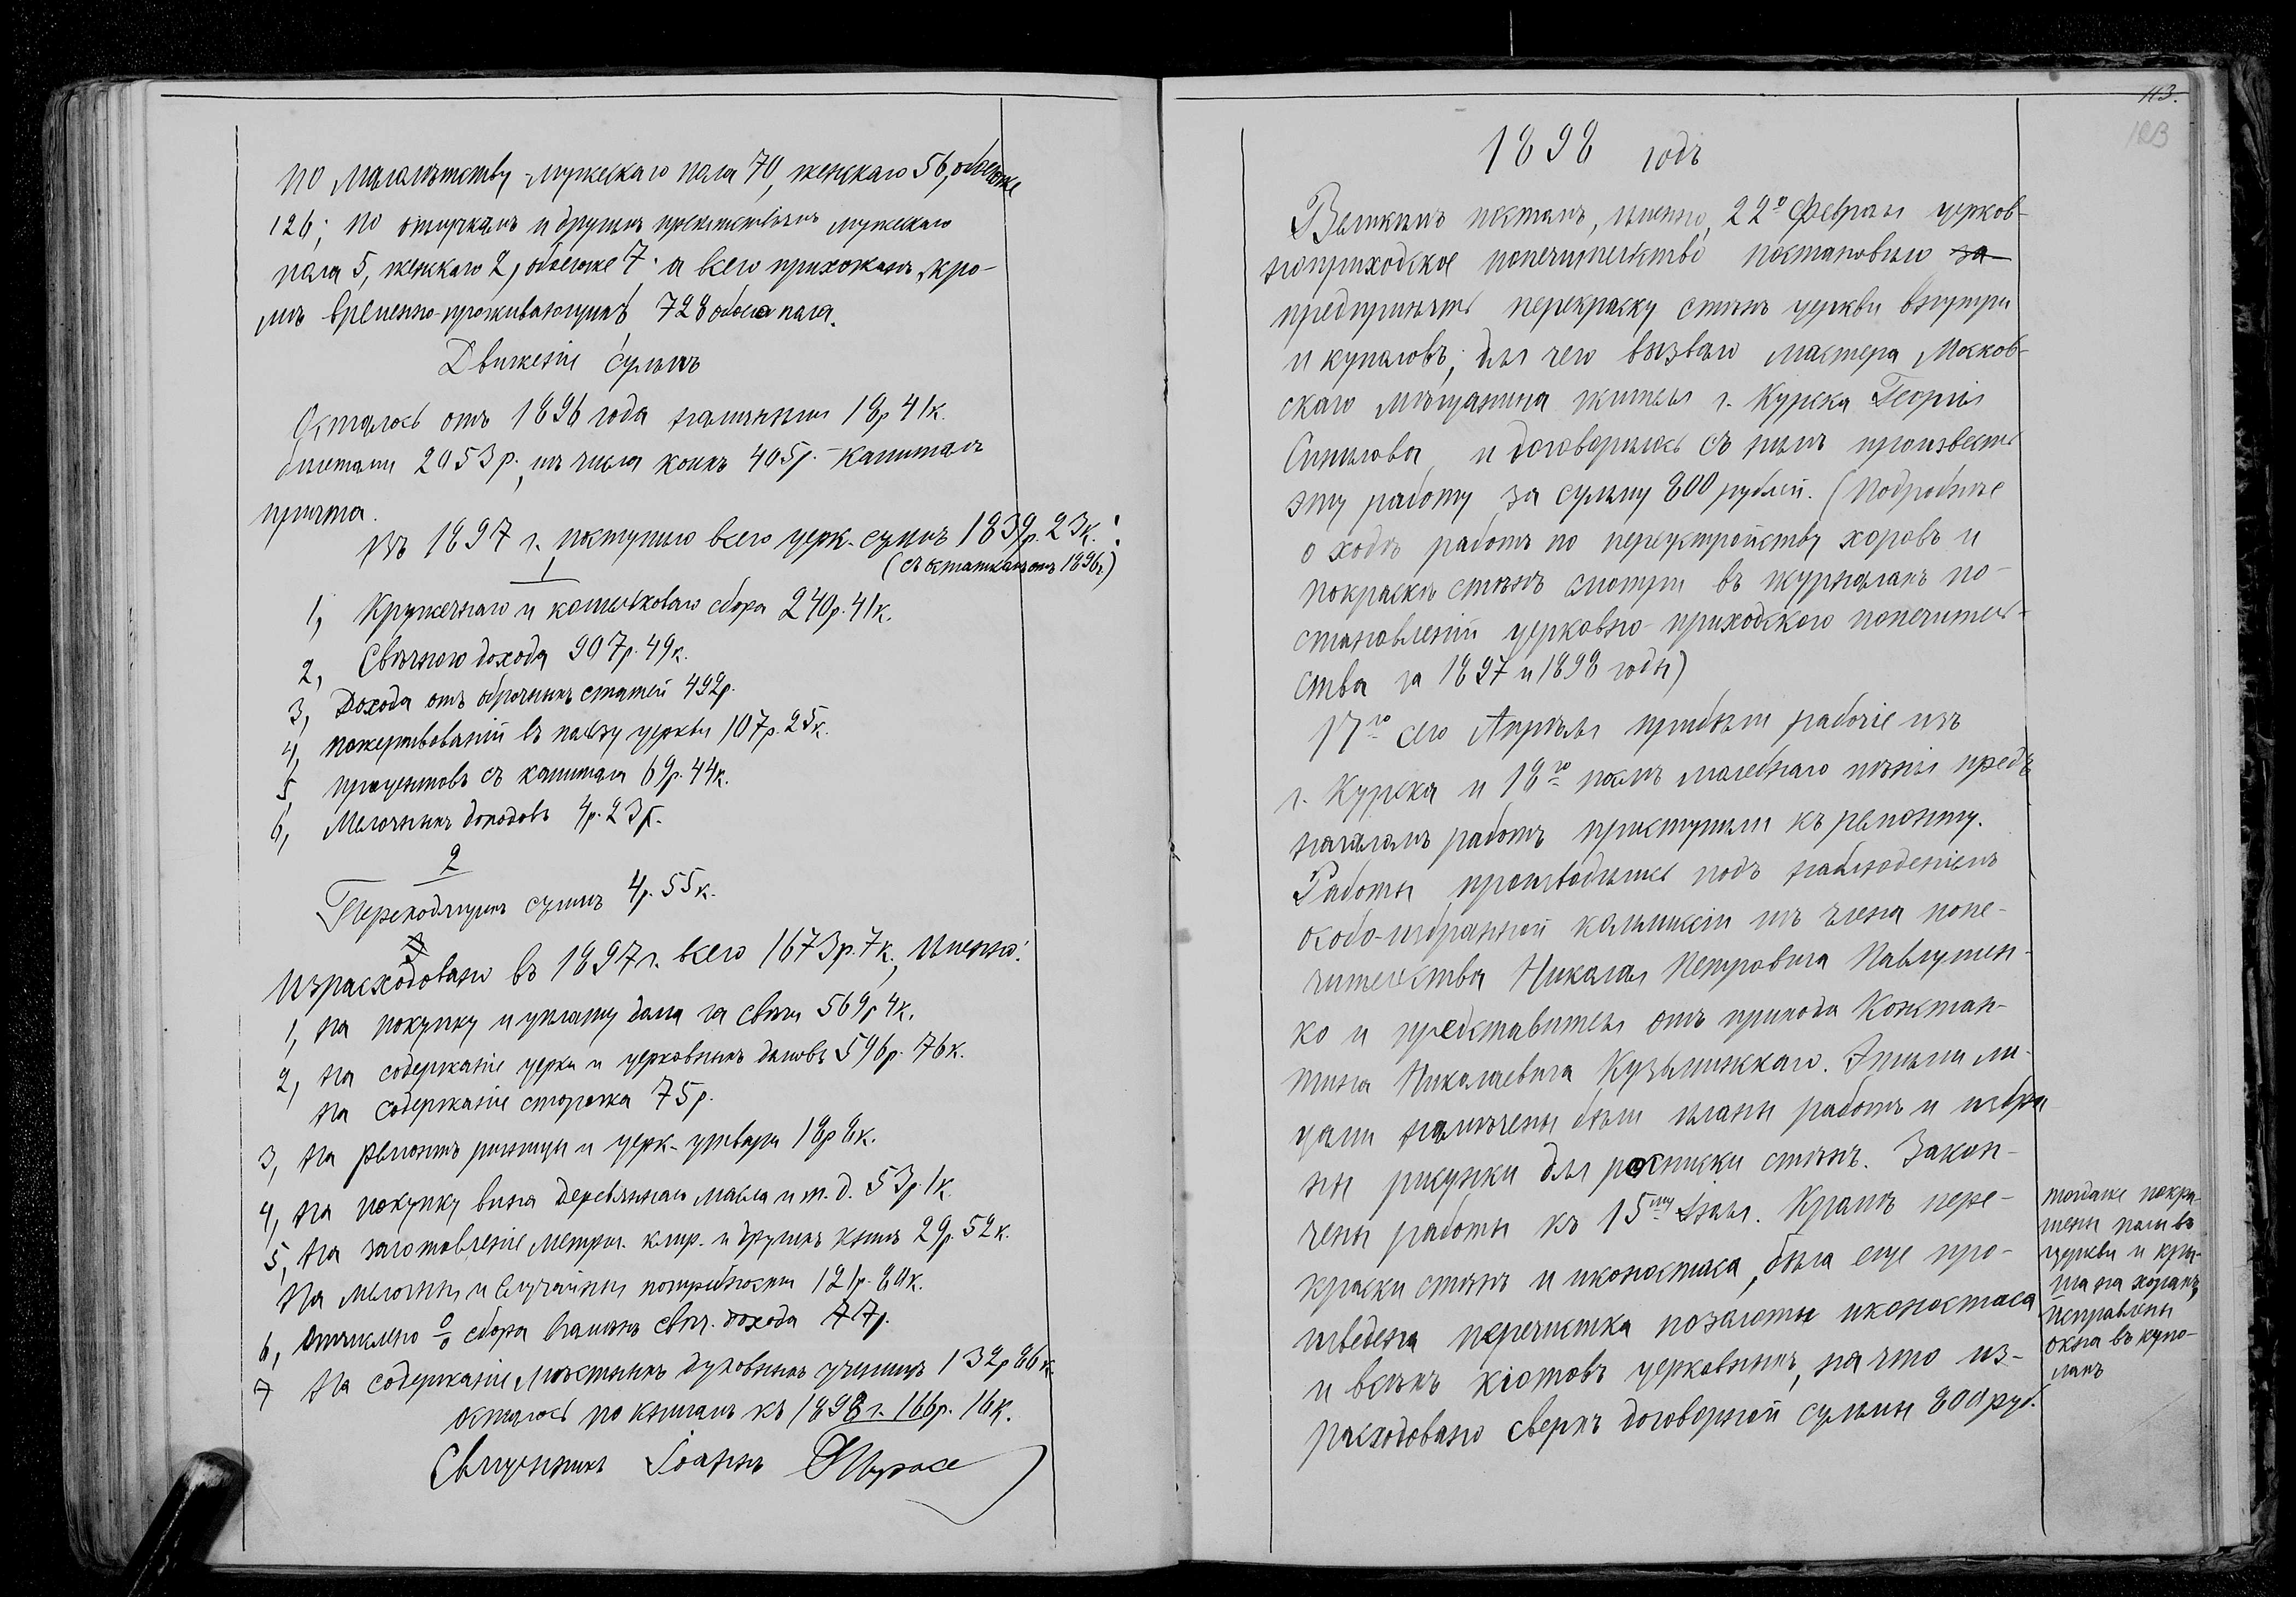 по малолѣтству - мужескаго пола 70, женскаго 56, обоегоже
126; по отлучкамъ и другимъ препятствіямъ мужескаго
пола 5, женскаго 2, обоегоже 7. а всего прихожанъ, кро-
мѣ временно-проживающихъ 728 обоего пола.
Движеніе суммъ
Осталось отъ 1896 года наличными 18р 41к.
билетами 2053р., изъ числа коихъ 405р. - капиталъ
причта.
Въ 1897 г. поступило всего церк. суммъ 1839р. 23к.:
(съ остаткомъ отъ 1896г)
1
1, Кружечнаго и кошельковаго сбора 240р. 41к.
2, Свѣчнаго дохода 907р. 49к.
3, Дохода отъ оброчныхъ статей 492р.
4, пожертвованій въ пользу церкви 107р. 25к.
5, процентовъ съ капитала 69р. 44к.
6, Мелочныхъ доходовъ 4р. 23к.
2
Переходящихъ суммъ 4р. 55к.
3
Израсходовано въ 1897 г. всего 1673р. 7к., Именно:
1, на покупку и уплату долга за свѣчи 569р 4к.
2, на содержаніе церкви и церковныхъ домовъ 596р. 76к.
на содержаніе сторожа 75р.
3, на ремонтъ ризницы и церк. утвари 18р 8к.
4, на покупку вина деревяннаго масла и т. д. 53р. 1к.
5, на заготовленіе метрич. клир. и другихъ книгъ 29р. 52к.
На мелочныя и случайныя потребности 121р. 80к.
6, отчислено % сбора взамѣнъ свѣч. дохода 77р.
7 на содержаніе мѣстныхъ духовныхъ училищъ 132р 86к.
осталось по книгамъ къ 1898 г. 166р. 16к.
Священникъ Іоаннъ
113.
1898 годъ
Великимъ постамъ, именно, 22го Февраля церков-
ноприходское попечительство постановило за
предпринять перекраску стѣнъ церкви внутри
и куполовъ, для чего вызвало мастера Москов-
скаго мѣщанина жителя г. Курска Георгія
и договорилось съ нимъ произвесть
эту работу за сумму 800 рублей. (Подробные
о ходѣ работъ по переустройству хоровъ и
покраскѣ стѣнъ смотри въ журналахъ по-
становленій церковно-приходскаго попечитель-
ства за 1897 и 1898 годы)
17го сего Апрѣля прибыли рабочіе изъ
г. Курска и 18го послѣ молебнаго пѣнія предъ
началомъ работъ приступили къ ремонту.
Работы производились подъ наблюденіемъ
особо-избранной коммиссіи изъ члена попе-
чительства Николая Петровича Павлушен-
ко и представителя отъ прихода Констан-
тина Николаевича Кузьминскаго. Этими ли-
цами намѣчены были планы работъ и избра
ны рисунки для росписки стѣнъ. Закон-
чены работы къ 15му Іюля. Кромѣ пере-
краски стѣнъ и иконостаса, была еще про-
изведена перечистка позолоты иконостаса
и всѣхъ кіотовъ церковныхъ, на что из-
расходовано сверхъ договорной суммы 800 руб.
тогдаже покра-
шены полы въ
церкви и кры-
ша на хорахъ,
исправлены
окна въ купо-
лахъ